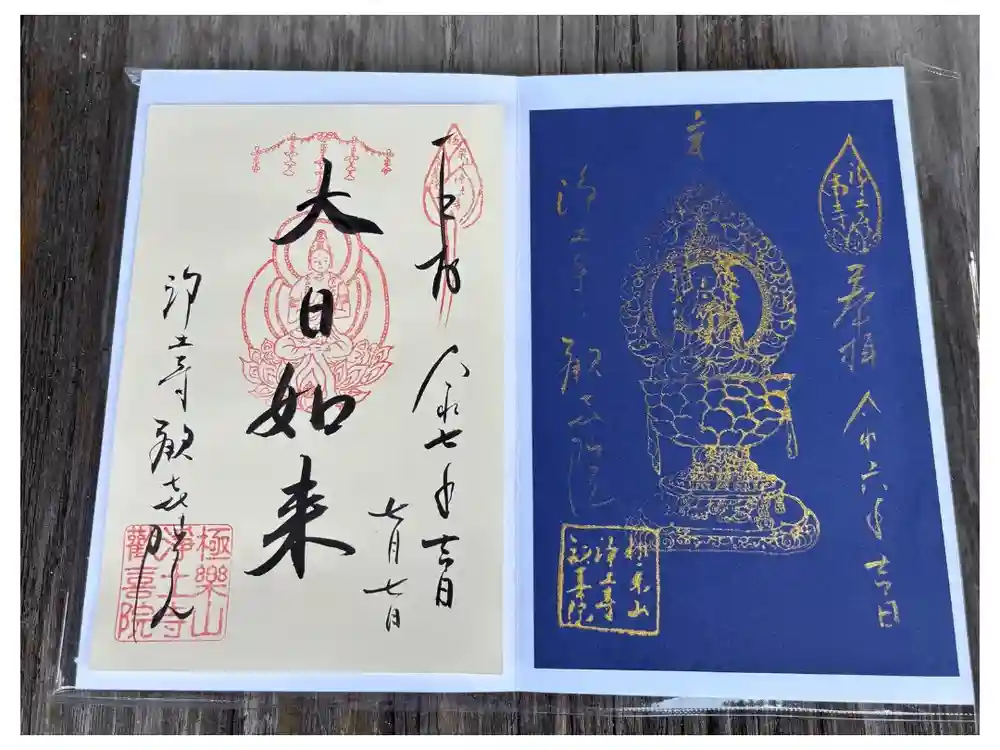 奉拝
令和七年 吉日
七月七日
大日如来
浄土寺 歓喜院
極樂山
淨土寺
歡喜院
奉拝
令和六年 吉日
浄土寺 歓喜院
極楽山
浄土寺
歓喜院